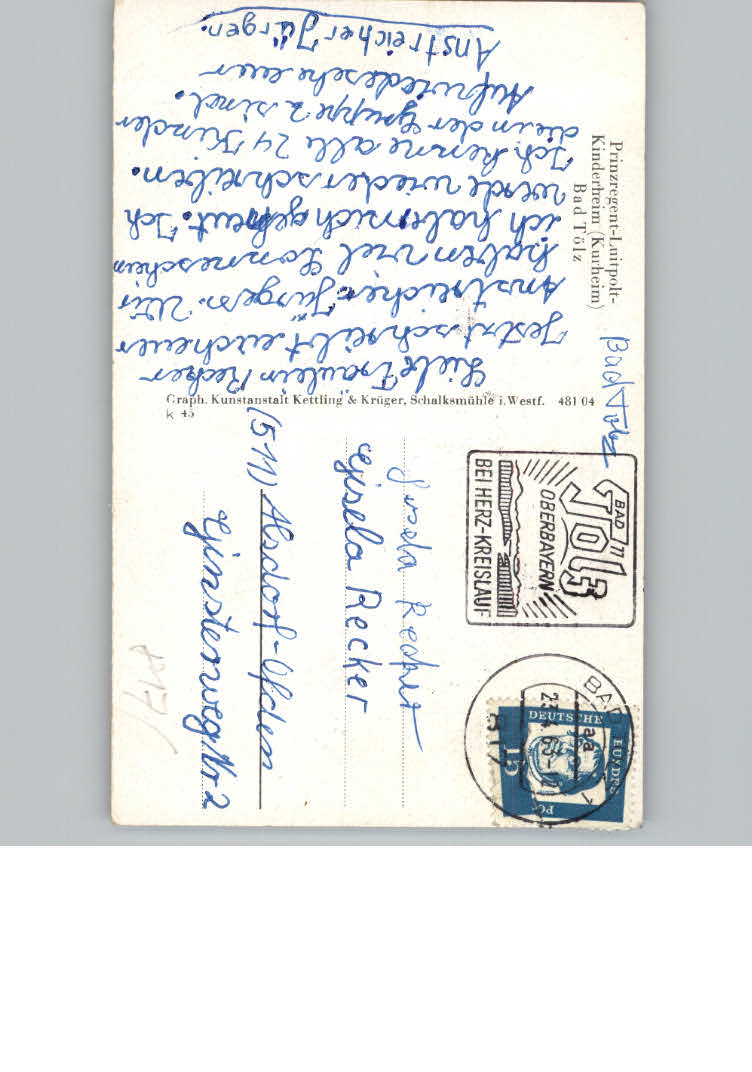 Prinzregent-Luitpolt-
Kinderheim (Kurheim)
Bad Tölz
Bad Tölz
Liebe Fräulein Recker
Jetzt schreibt euch euer
Anstreicher Jürgen. Wir
haben viel Sonneschein
ich habe mich gefreut. Ich
werde wieder schreiben.
Ich kenne alle 24 Kinder
die in der Gruppe 2 sind.
Aufwiedesehe euer
Anstreicher Jürgen.
Graph. Kunstanstalt Kettling & Krüger, Schalksmühle i. Westf. 481 04
K 45
BAD
Tölz
OBERBAYERN
BEI HERZ-KREISLAUF
BAD
aa
817
DEUTSCHE
BUNDES
PO
15
Gisela Recker
(511) Alsdorf-Ofden
Ginsterweg Nr 2